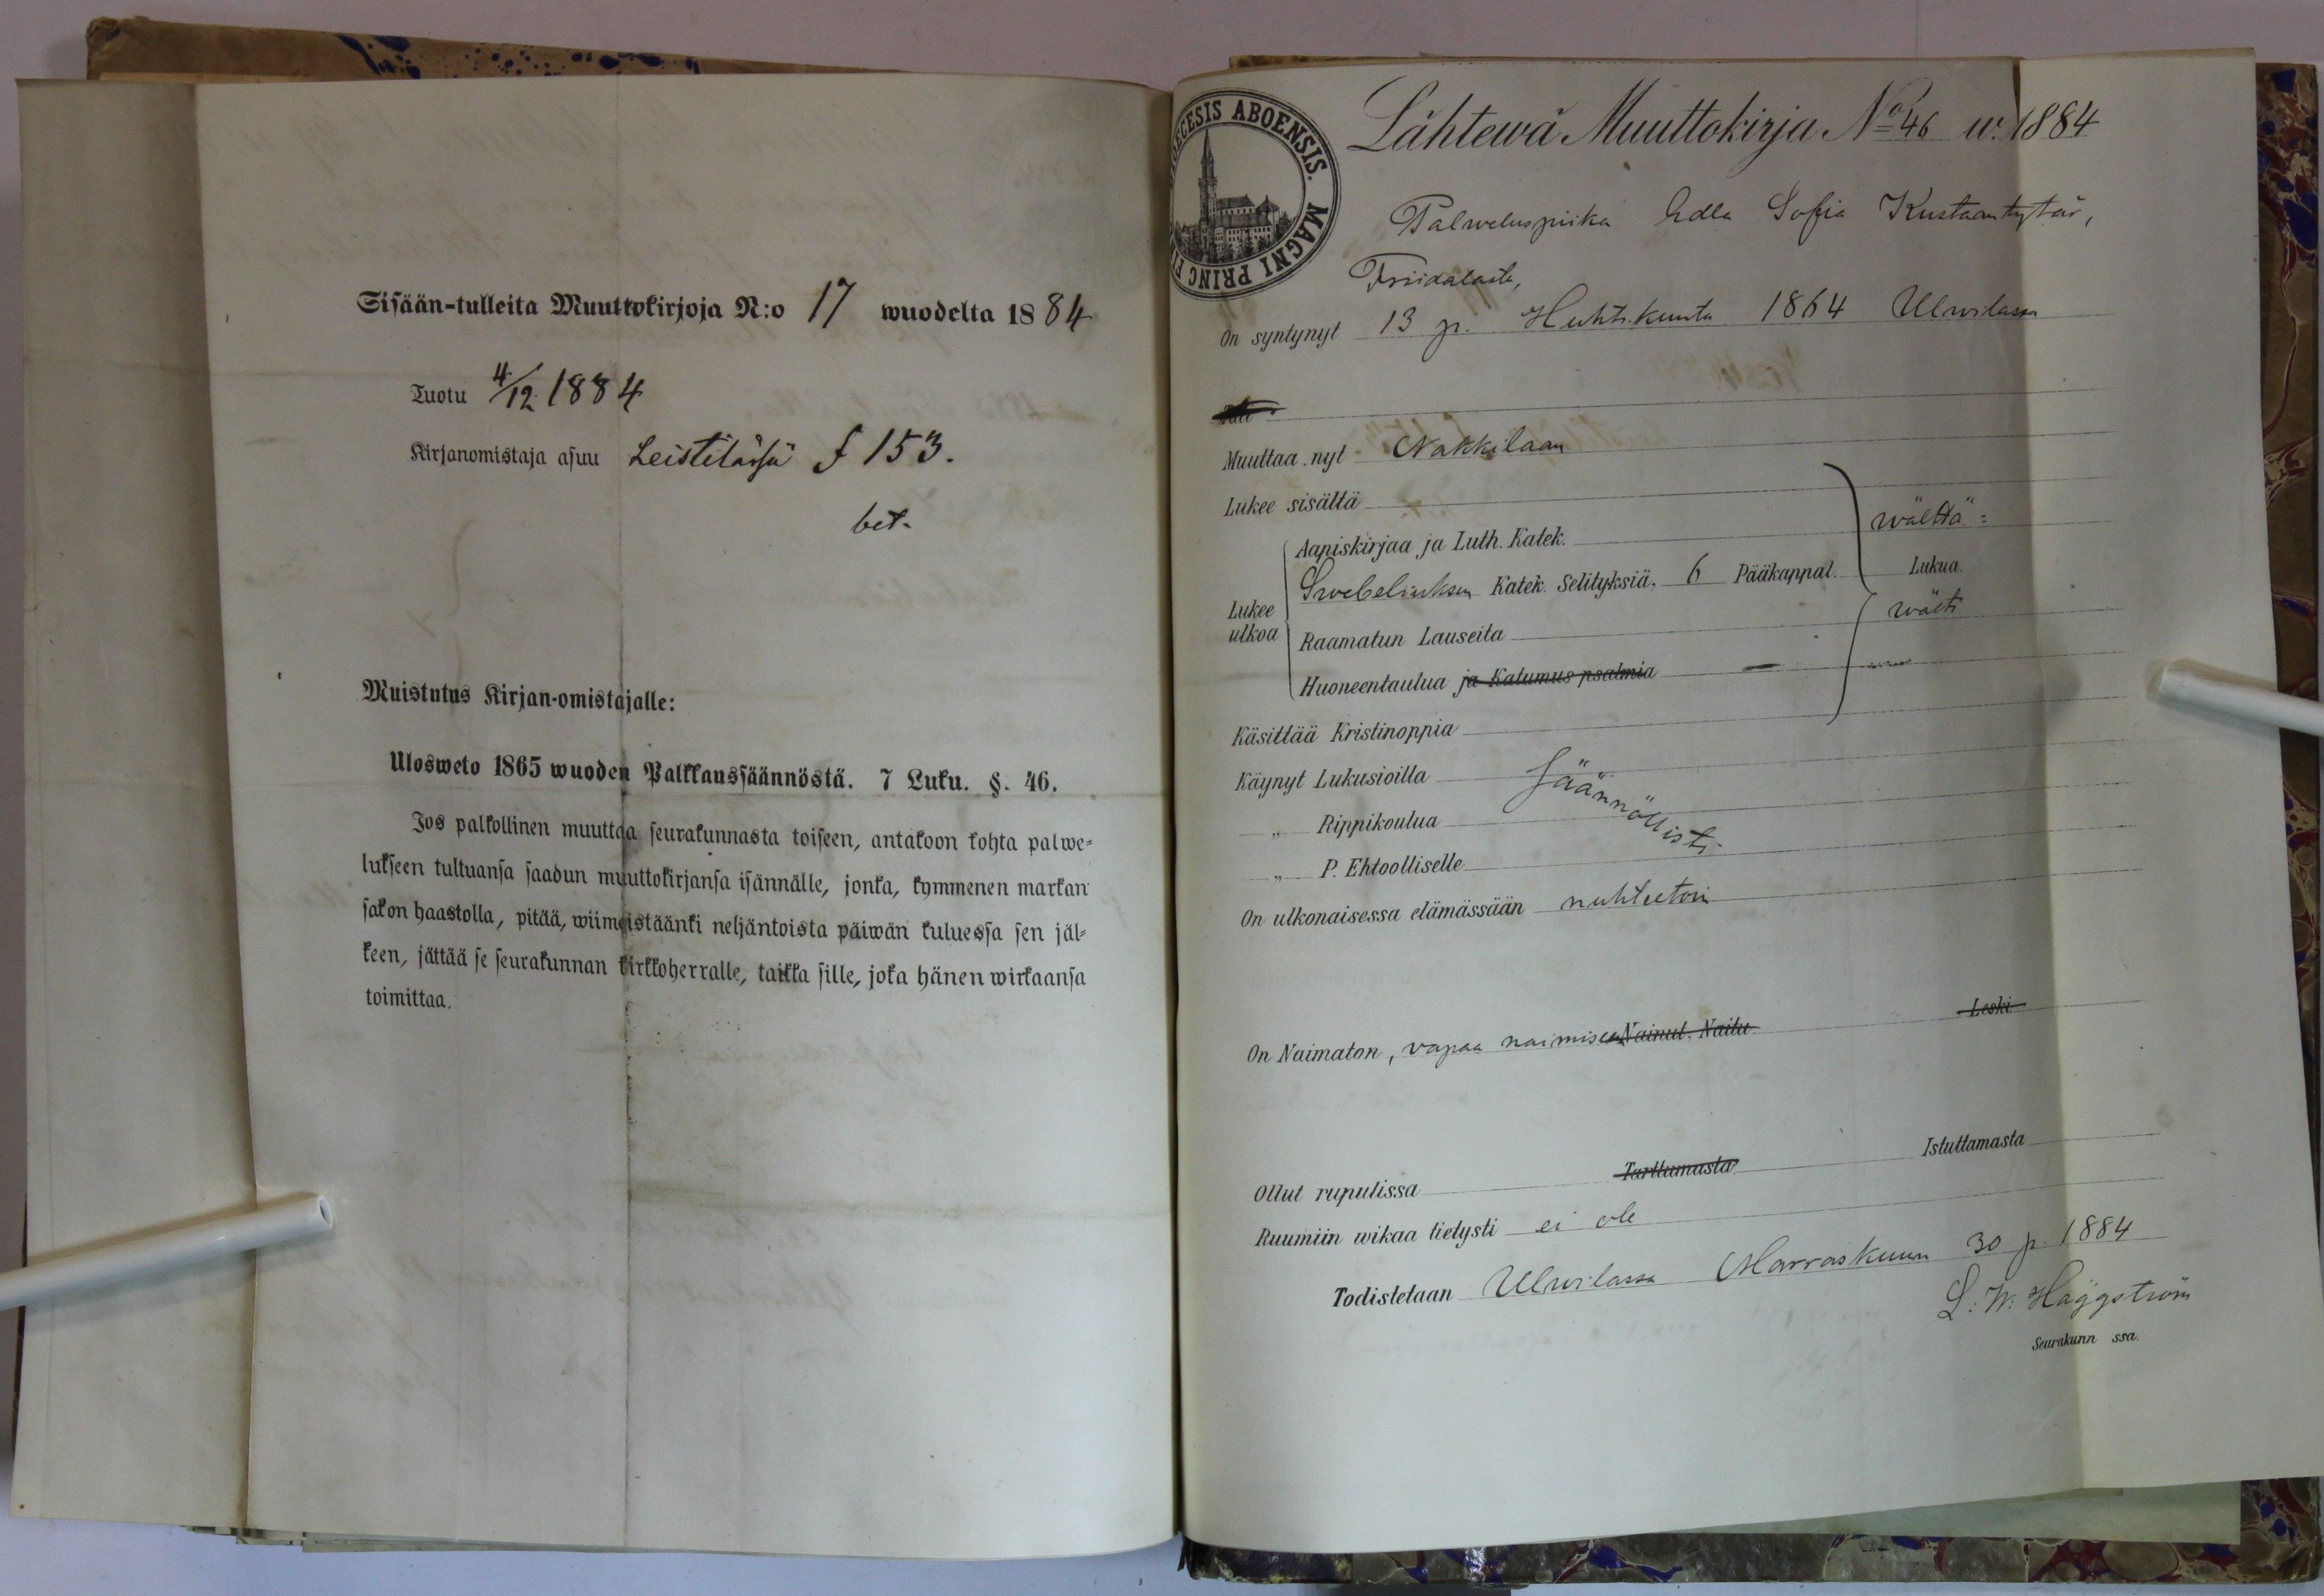 Sisään-tulleita Muuttokirjoja N:o 17 wuodelta 1884
Tuotu 4/12 1884
Kirjanomistaja asuu Leistilässä f 153.
bet.
Muistutus Kirjan-omistajalle:
Ulosweto 1865 wuoden Palkkaussäännöstä. 7 Luku. §. 46.
Jos palkollinen muuttaa seurakunnasta toiseen, antakoon kohta palwe-
lukseen tultuansa saadun muuttokirjansa isännälle, jonka, kymmenen markan
sakon haastolla, pitää, wiimeistäänki neljäntoista päiwän kuluessa sen jäl-
keen, jättää se seurakunnan kirkkoherralle, taikka sille, joka hänen wirkaansa
toimittaa.
DIOECESIS ABOENSIS. MAGNI PRINC FI
Lähtewä Muuttokirja No 46 w. 1884
Palweluspiika Edla Sofia Kustaantytär,
Friidalasta,
On syntynyt 13 p. Huhtikuuta 1864 Ulwilassa
Muuttaa nyt Nakkilaan
Lukee sisältä
Lukee ulkoa
Aapiskirjaa ja Luth. Katek. wälttä=
Swebeliuksen Katek. Selityksiä, 6 Pääkappal. Lukua.
Raamatun Lauseita wälti
Huoneentaulua ja Katumus psalmia —
Käsittää Kristinoppia
Käynyt Lukusioilla Säännöllisti.
„ Rippikoulua
„ P. Ehtoolliselle
On ulkonaisessa elämässään nuhteetoin
On Naimaton, vapaa naimiseen Nainut. Naitu. Leski
Ollut rupulissa Tarttumasta Istuttamasta
Ruumiin wikaa tietysti ei ole
Todistetaan Ulwilassa Marraskuun 30 p. 1884
L. W. Häggström
Seurakunn ssa.